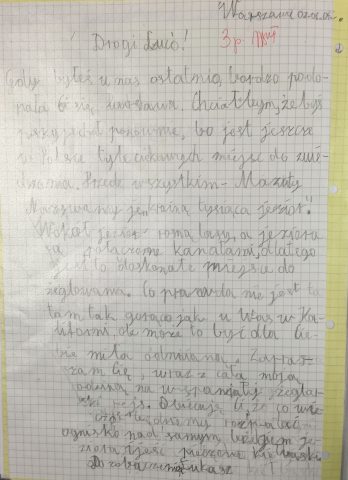 Warszawa 02.06.05
Drogi Lucio! 3p
Gdy byłeś u nas ostatnio, bardzo podo-
bała Ci się warszawa. Chciałbym, żebyś
przyjechał ponownie, bo jest jeszcze
w Polsce tyle ciekawych miejsc do zwie-
dzania. Przede wszystkim - Mazury
Nazywamy je „krainą tysiąca jezior".
Wokół jezior rosną lasy, a jeziora
są połączone kanałami, dlatego
jest to doskonałe miejsce do
żeglowania. Co prawda nie jest tu
tam tak gorąco jak u Was w Ka-
liforni, ale może to być dla Cie-
bie miła odmiana. Zapras-
zam Cię, wraz z całą moją
rodziną na wspaniały żeglar-
ski rejs. Obiecuję Ci, że co wie-
czór będziemy rozpalać
ognisko nad samym brzegiem je-
ziora i jeść pieczone kiełbaski.
Do zobaczenia Łukasz